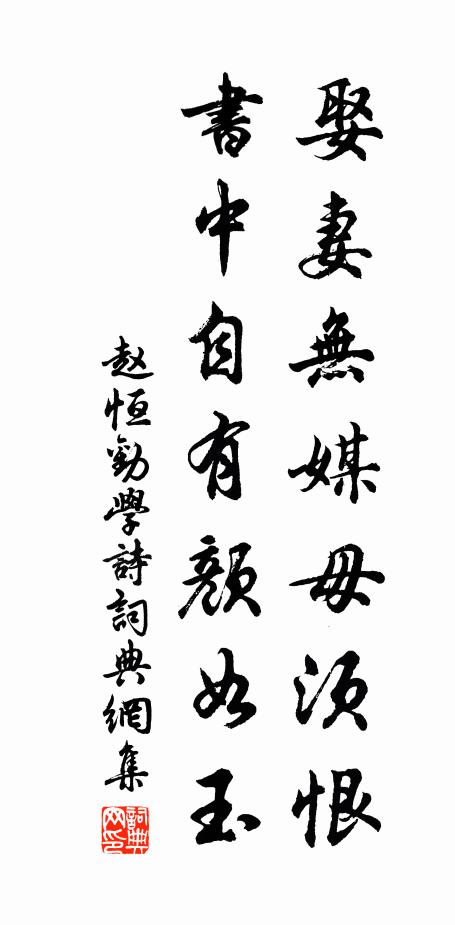 娶妻無媒毋須恨
書中自有顏如玉
赵恒勸學詩詞典網集
詞典網印